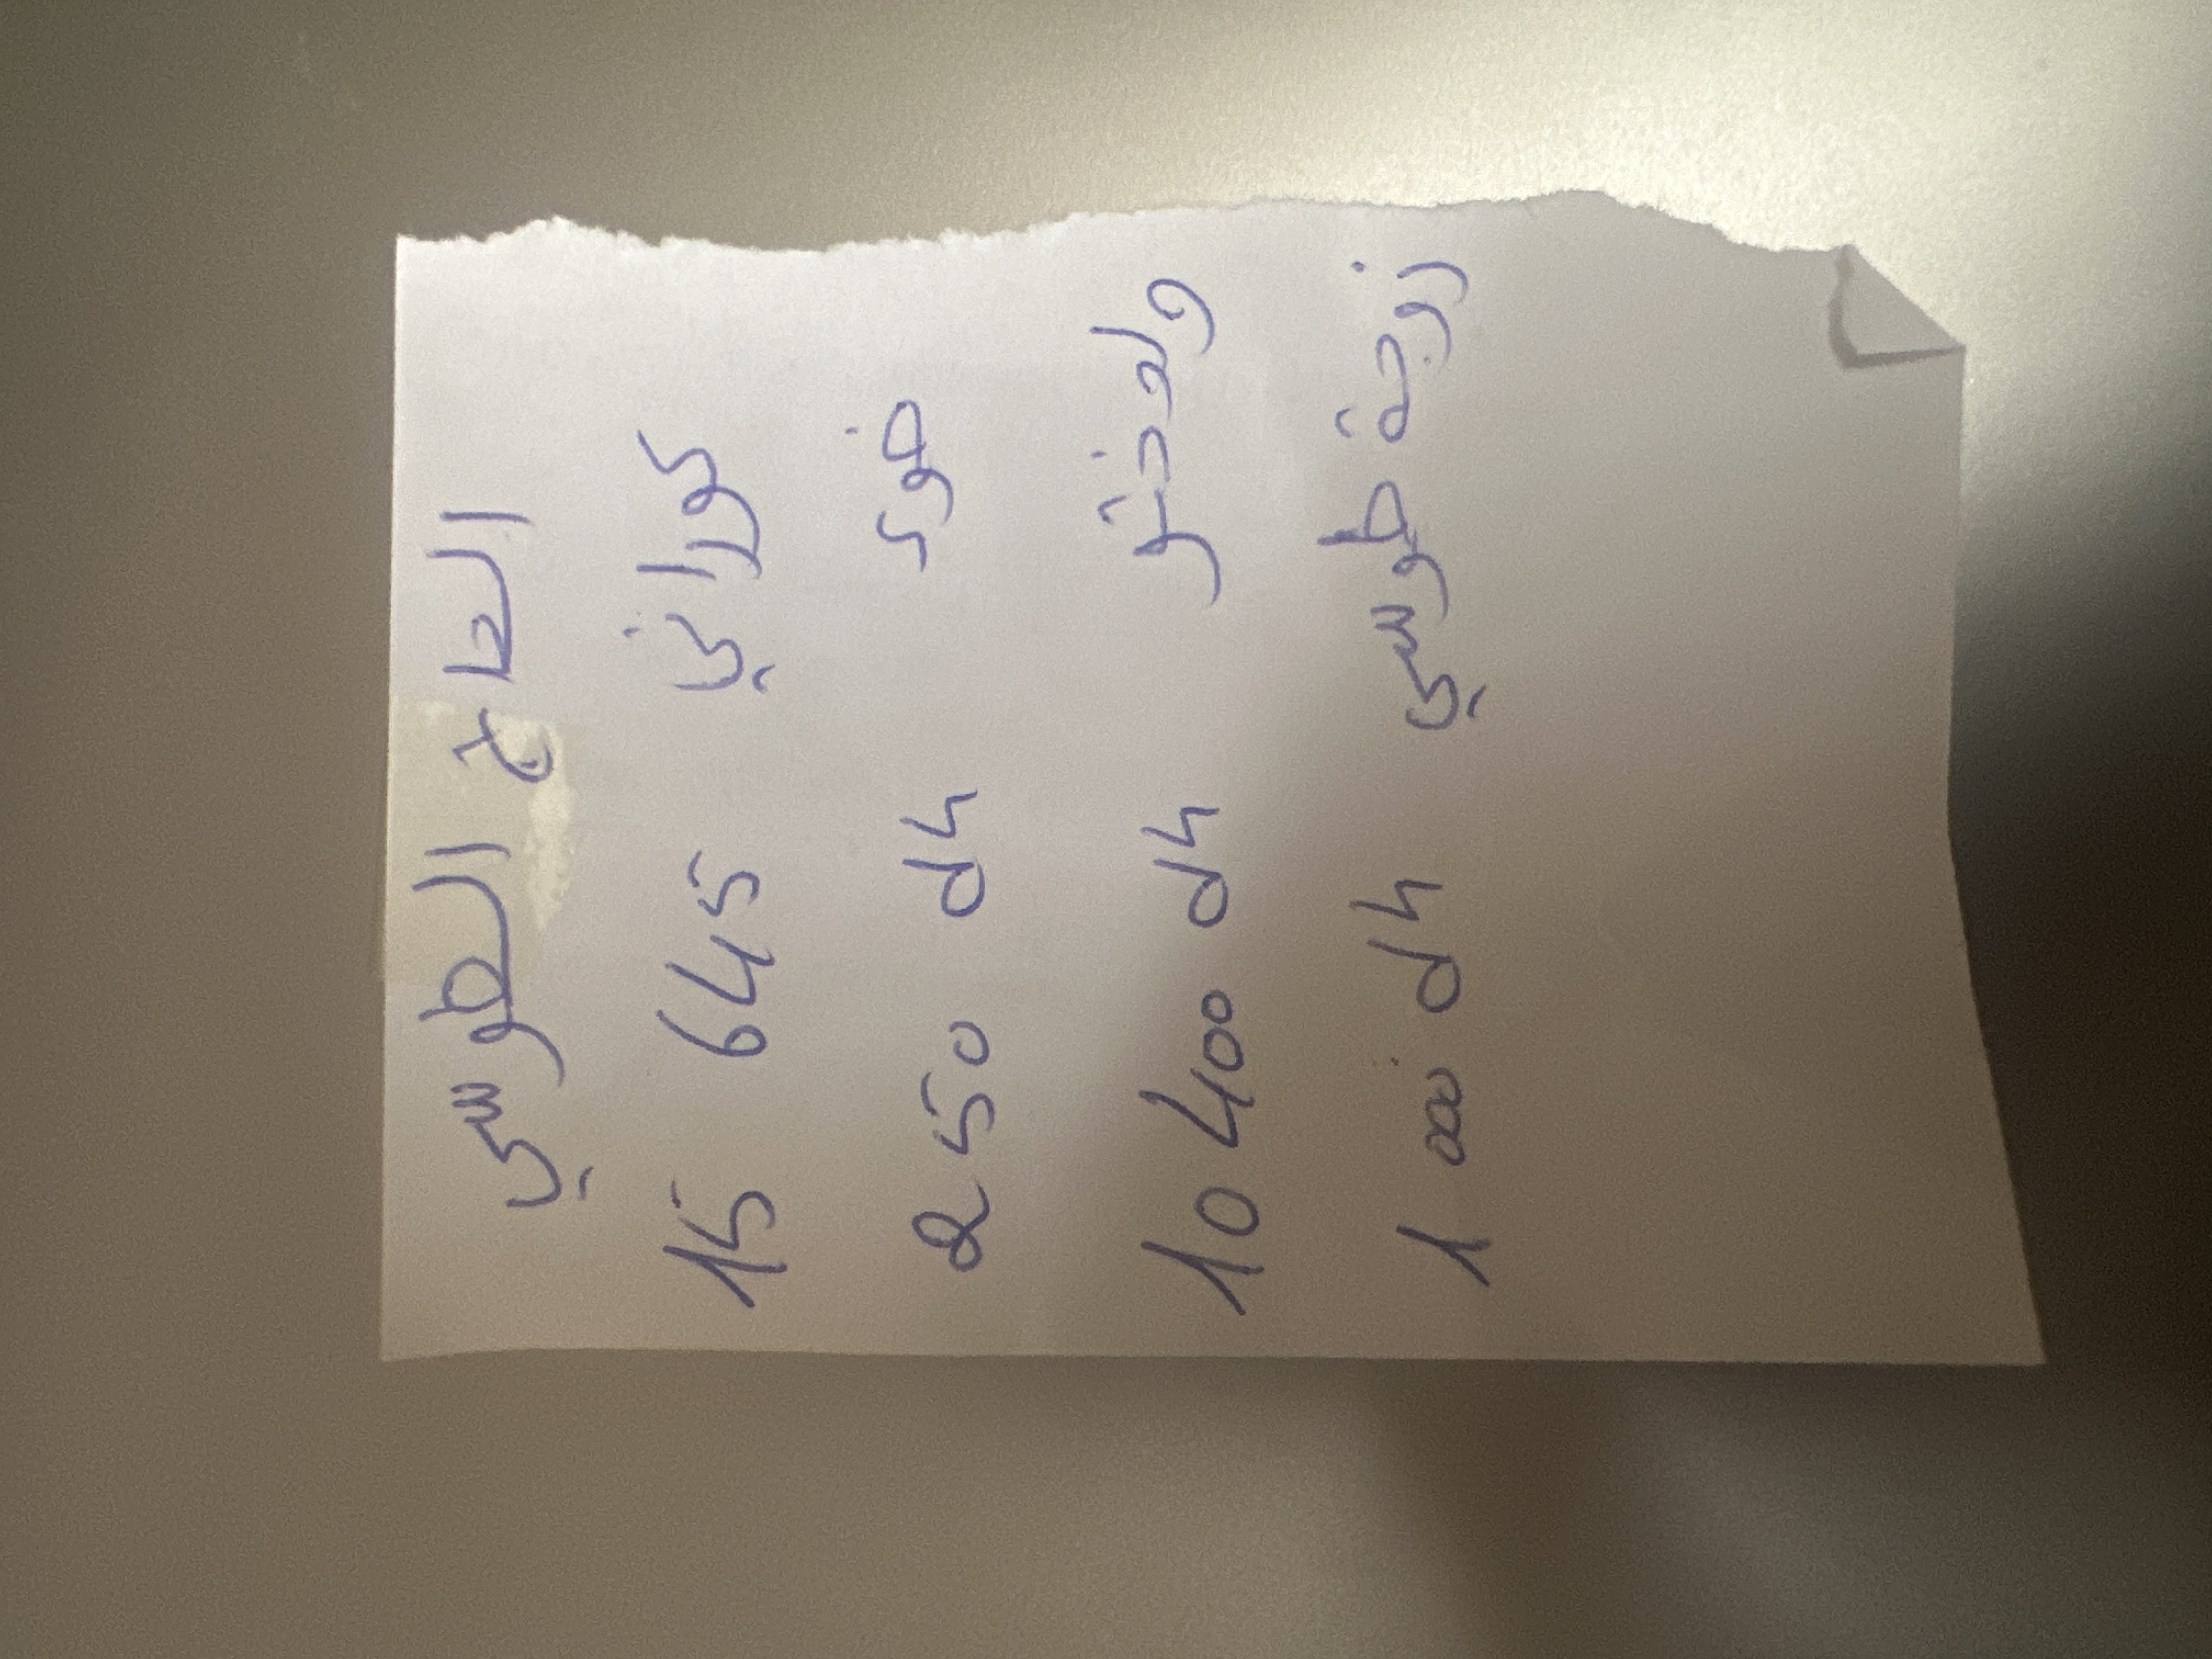 الحاج الطوسي
كوراني 645 15
ضوء 250 dh
ولدختو 10 400 dh
زوجة طوسي 1 000 dh